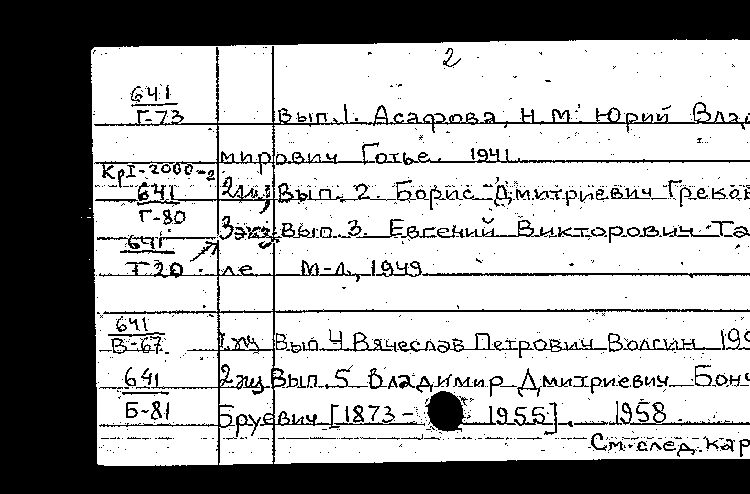 2
641
Г-73 Вып.1. Асафова, Н.М. Юрий Влад
мирович Готье. 1941.
КрI-2000-2
641 2экз, Вып. 2. Борис Дмитриевич Греков
Г-80
3экз. Вып. 3. Евгений Викторович Та
641
Т20 ле М-Л., 1949
641
В-67 1экз Вып.4 Вячеслав Петрович Волгин. 195
641 2экз Вып.5 Владимир Дмитриевич Бонч
Б-81 Бруевич [1873- 1955]. 1958.
См. след. кар